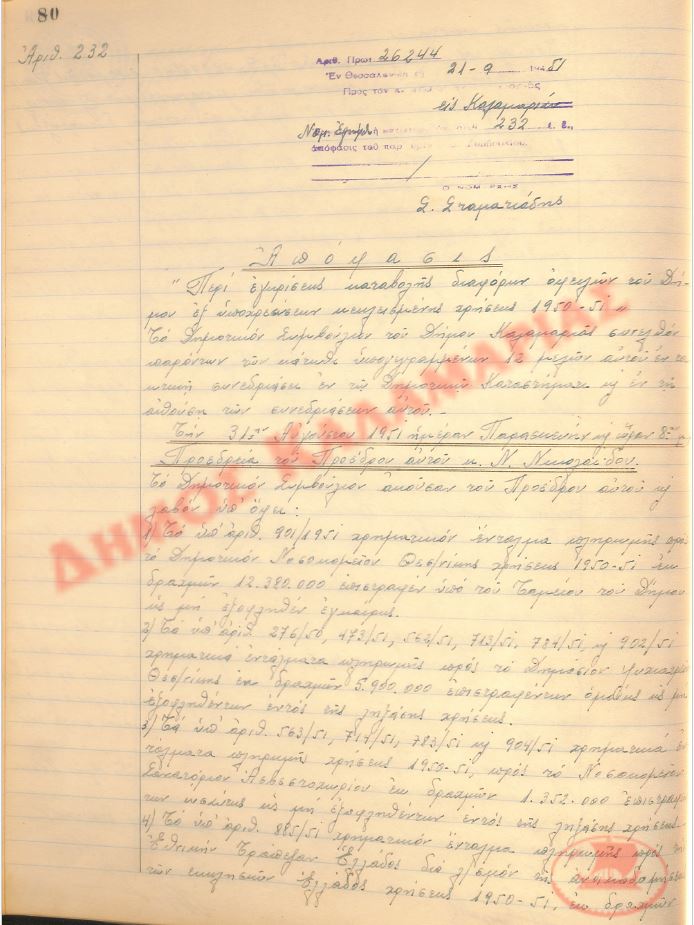 80
Ἀριθ. 232
Ἀριθ. Πρωτ. 26244
Ἐν Θεσσαλονίκῃ τῇ 21-9 1951
Πρὸς τὸν
εἰς Καλαμαριάν
232
ἀπόφασις τοῦ παρ
Ὁ ΝΟΜΑΡΧΗΣ
Σ. Σταματιάδης
Ἀπόφασις
"Περὶ ἐγκρίσεως καταβολῆς διαφόρων ὀφειλῶν τοῦ Δή-
μου ἐξ ὑποχρεώσεων κεκλεισμένης χρήσεως 1950-51"
Τὸ Δημοτικὸν Συμβούλιον τοῦ Δήμου Καλαμαριᾶς συνελθὸν
παρόντων τῶν κάτωθι ὑπογεγραμμένων 12 μελῶν αὐτοῦ ἐν τα-
κτικῇ συνεδριάσει ἐν τῷ Δημοτικῷ Καταστήματι κ ἐν τῇ
αἰθούσῃ τῶν συνεδριάσεων αὐτοῦ.-
Τὴν 31ην Αὐγούστου 1951 ἡμέραν Παρασκευὴν κ ὥραν 8ην μ
Προεδρείᾳ τοῦ Προέδρου αὐτοῦ κ. Ν. Νικολαΐδου.
Τὸ Δημοτικὸν Συμβούλιον ἀκοῦσαν τοῦ Προέδρου αὐτοῦ κ
λαβὸν ὑπ' ὄψει:
1) Τὸ ὑπ' ἀριθ. 901/1951 χρηματικὸν ἔνταλμα πληρωμῆς πρὸς
τὸ Δημοτικὸν Νοσοκομεῖον Θεσ/νίκης χρήσεως 1950-51 ἐκ
δραχμῶν 12.380.000 ἐπιστραφὲν ὑπὸ τοῦ Ταμείου τοῦ Δήμου
ὡς μὴ ἐξοφληθὲν ἐγκαίρως.
2) Τὰ ὑπ' ἀριθ. 276/50, 473/51, 562/51, 713/51, 784/51, κ 902/51
χρηματικὰ ἐντάλματα πληρωμῆς πρὸς τὸ Δημόσιον Ψυχιατρεῖον
Θεσ/νίκης ἐκ δραχμῶν 5.900.000 ἐπιστραφέντων ὁμοίως ὡς μὴ
ἐξοφληθέντων ἐντὸς τῆς ληξάσης χρήσεως.
3) Τὰ ὑπ' ἀριθ. 563/51, 714/51, 783/51 κ 904/51 χρηματικὰ ἐν-
τάλματα πληρωμῆς χρήσεως 1950-51, πρὸς τὸ Νοσοκομεῖον
Σανατόριον Ἀσβεστοχωρίου ἐκ δραχμῶν 1.352.000 ἐπιστραφέν-
των ὡσαύτως ὡς μὴ ἐξοφληθέντων ἐντὸς τῆς ληξάσης χρήσεως.
4) Τὸ ὑπ' ἀριθ. 885/51 χρηματικὸν ἔνταλμα πληρωμῆς πρὸς τὴν
Ἐθνικὴν Τράπεζαν Ἑλλάδος διὰ λ/σμὸν τῆς ἀνοικοδομήσεως
τῶν ἐκκλησιῶν Ἑλλάδος χρήσεως 1950-51, ἐκ δραχμῶν
ΔΗΜΟΣ ΚΑΛΑΜΑΡΙΑΣ